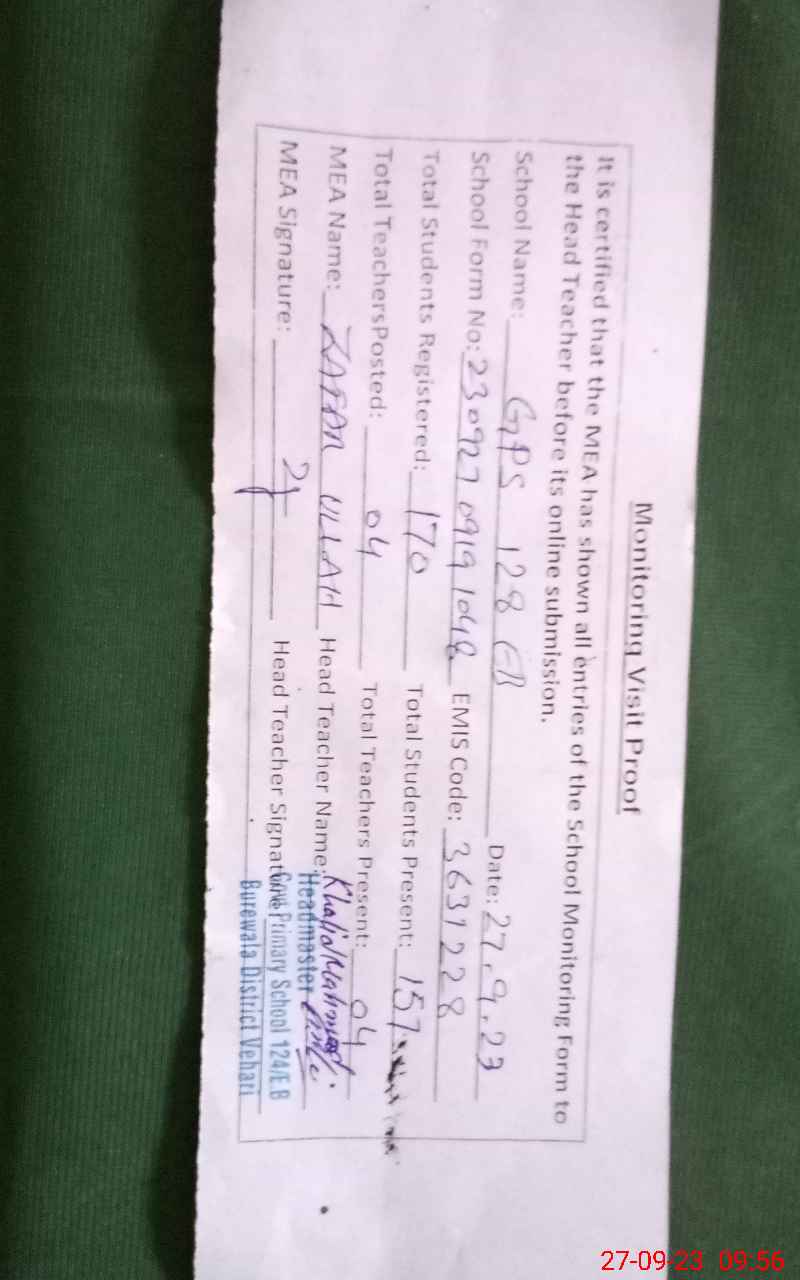 Monitoring Visit Proof
It is certified that the MEA has shown all entries of the School Monitoring Form to
the Head Teacher before its online submission.
School Name: GPS 128 EB Date: 27.9.23
School Form No: 230927 0919 1048 EMIS Code: 3631228
Total Students Registered: 170 Total Students Present: 157
Total TeachersPosted: 04 Total Teachers Present: 04
MEA Name: ZAFAR ULLAH Head Teacher Name: Khalid Mahmood
MEA Signature: Head Teacher Signature:
Headmaster
Govt. Primary School 124/E.B
Burewala District Vehari
27-09-23 09:56